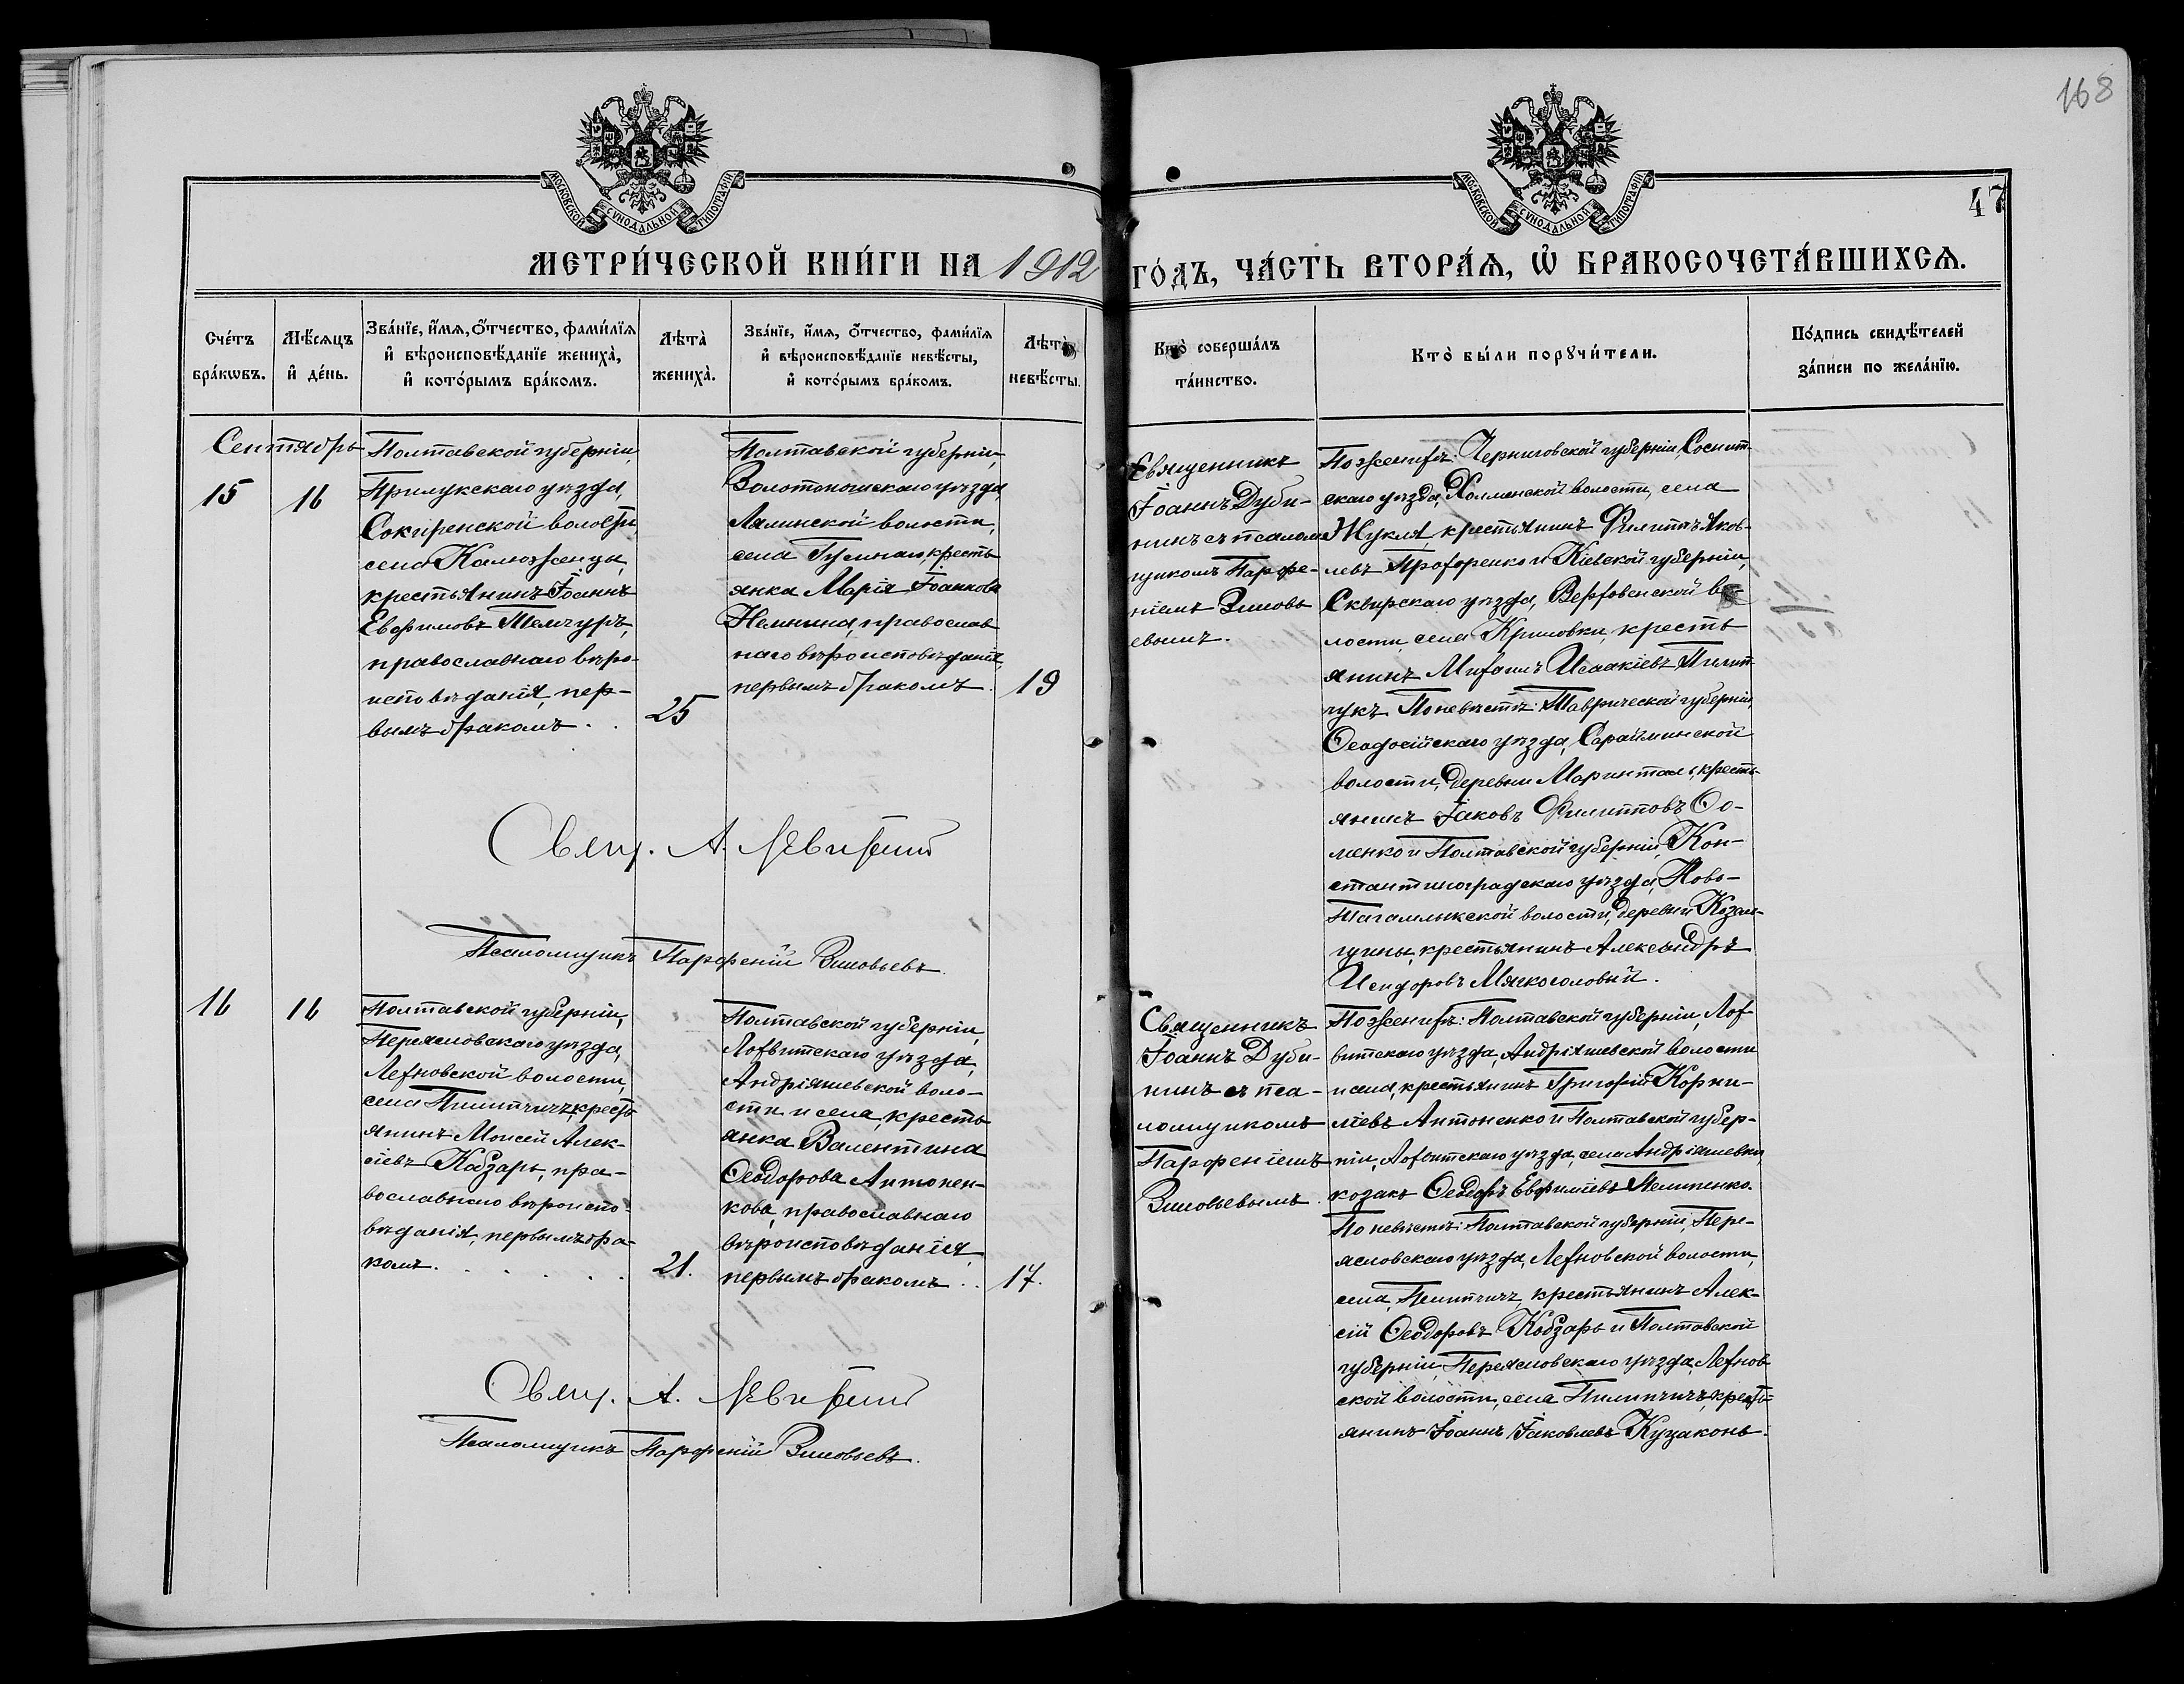 168
МОСКОВСКОЙ СѴНОДАЛЬНОЙ ТИПОГРАФІИ
МОСКОВСКОЙ СѴНОДАЛЬНОЙ ТИПОГРАФІИ
47
МЕТРИ́ЧЕСКОЙ КНИ́ГИ НА 1912
ГО́ДЪ, ЧА́СТЬ ВТОРА́Ѧ, Ѡ҆ БРАКОСОЧЕТА́ВШИХСѦ.
Сче́тъ
бра́кѡвъ.
Мѣ́сѧцъ
и҆ де́нь.
Зва́нїе, и҆́мѧ, ѻ҆́тчество, фами́лїѧ
и҆ вѣроисповѣ́данїе жениха̀,
и҆ кото́рымъ бра́комъ.
Лѣта̀
жениха̀.
Зва́нїе, и҆́мѧ, ѻ҆́тчество, фами́лїѧ
и҆ вѣроисповѣ́данїе невѣ́сты,
и҆ кото́рымъ бра́комъ.
Лѣта̀
невѣ́сты.
Кто̀ соверша́лъ
та́инство.
Кто̀ бы́ли порꙋчи́тели.
По́дпись свидѣ́телей
за́писи по жела́нїю.
Сентябрь
15
16
Полтавской губерніи,
Прилукскаго уѣзда,
Сокиренской волости,
села Калюженцы,
крестьянинъ Іоаннъ
Евфимовъ Темчуръ,
православнаго вѣро-
исповѣданія, пер-
вымъ бракомъ.
25
Полтавской губерніи,
Золотоношскаго уѣзда,
Лялинской волости,
села Гусинаго, кресть-
янка Марія Іоаннова
Немнина, православ
наго вѣроисповѣданія,
первымъ бракомъ.
19
Священникъ
Іоаннъ Дуби-
нинъ съ псалом
щикомъ Парфе-
ніемъ Зиновь
евымъ.
По женихѣ: Черниговской губерніи, Сосниц
скаго уѣзда, Холменской волости, села
Жукля, крестьянинъ Филиппъ Яков-
левъ Прохоренко и Кіевской губерніи,
Сквирскаго уѣзда, Верховенской во-
лости, села Криловки, кресть
янинъ Михаилъ Исаакіевъ Пилип
чукъ. По невѣстѣ: Таврической губерніи,
Ѳеодосійскаго уѣзда, Сарайминской
волости, деревни Маринталь, кресть-
янинъ Іаковъ Филипповъ Ѳо-
менко и Полтавской губерніи, Кон-
стантиноградскаго уѣзда, Ново-
Тагамлыкской волости, деревни Козель-
щины, крестьянинъ Александръ
Исидоровъ Мягкоголовый.
Свящ. А. Левицкій
Псаломщикъ Парфеній Зиновьевъ.
16
16
Полтавской губерніи,
Переяславскаго уѣзда,
Лехновской волости,
села Пилипчичъ, кресть
янинъ Моисей Алек-
сіевъ Кобзарь, пра-
вославнаго вѣроиспо-
вѣданія, первымъ бра-
комъ.
21.
Полтавской губерніи,
Лохвитскаго уѣзда,
Андріяшевской воло-
сти и села, кресть
янка Валентина
Ѳеодорова Антонен-
кова, православнаго
вѣроисповѣданія,
первымъ бракомъ.
17.
Священникъ
Іоаннъ Дуби-
нинъ съ пса-
ломщикомъ
Парфеніемъ
Зиновьевымъ.
По женихѣ: Полтавской губерніи, Лох
витскаго уѣзда, Андріяшевской волости
и села, крестьянинъ Григорій Корни-
ліевъ Антоненко и Полтавской губер-
ніи, Лохвитскаго уѣзда, села Андріяшевки,
козакъ Ѳеодоръ Евфиміевъ Пелипенко.
По невѣстѣ: Полтавской губерніи, Пере-
яславскаго уѣзда, Лехновской волости,
села, Пилипчичъ, крестьянинъ Алек-
сій Ѳеодоровъ Кобзарь и Полтавской
губерніи, Переяславскаго уѣзда, Лехнов-
ской волости, села Пилипчичъ, кресть-
янинъ Іоаннъ Іаковлевъ Куцаконь.
Свящ. А. Левицкій
Псаломщикъ Парфеній Зиновьевъ.